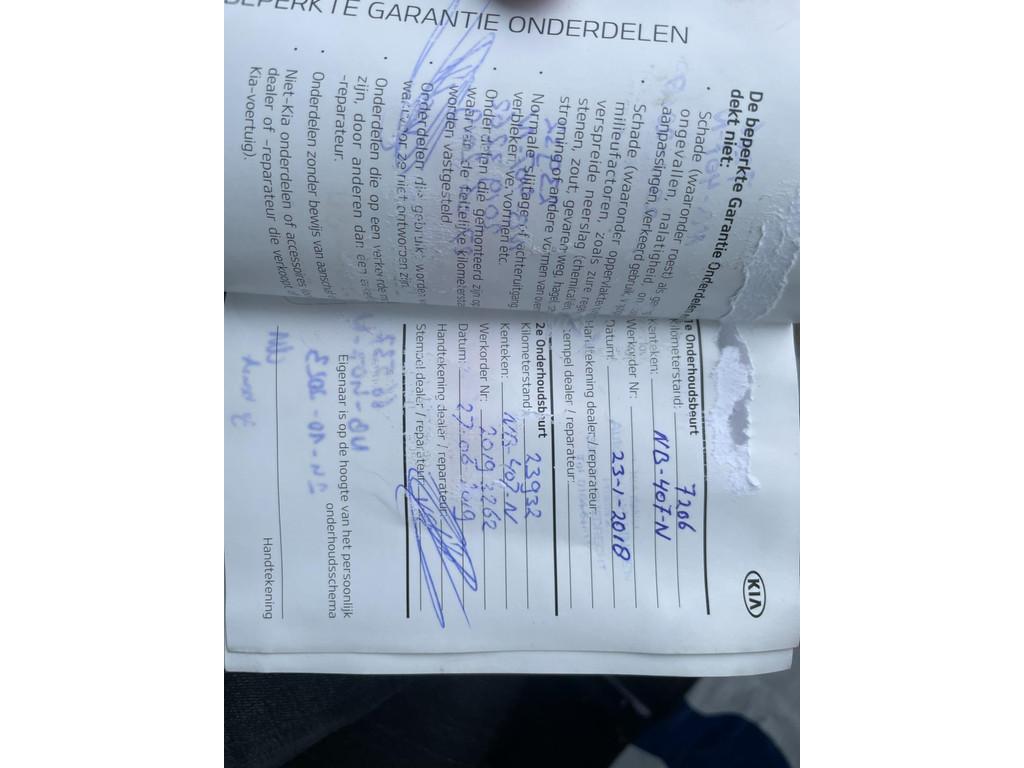 BEPERKTE GARANTIE ONDERDELEN
De beperkte Garantie Onderdelen
dekt niet:
• Schade (waaronder roest) als
ongevallen, nalatigheid,
aanpassingen, verkeerd gebruik
Schade (waaronder oppervlakte
milieufactoren, zoals zure
verspreide neerslag (chemicaliën
stenen, zout, gevaren weg, hagel,
stroming of andere vormen van
• Normale slijtage of achteruitgang
verbleken, vervormen etc.
• Onderdelen die gemonteerd zijn op
waarvan de feitelijke
worden vastgesteld
• Onderdelen die gebruikt worden
waarvoor ze niet ontworpen zijn.
• Onderdelen die op een verkeerde
zijn, door anderen dan een
-reparateur.
• Onderdelen zonder bewijs van
• Niet-Kia onderdelen of accessoires
dealer of -reparateur die verkoopt
Kia-voertuig).
KIA
1e Onderhoudsbeurt
Kilometerstand: 7206
Kenteken: NB-407-N
Werkorder Nr:
Datum: 23-1-2018
Handtekening dealer / reparateur:
Stempel dealer / reparateur:
2e Onderhoudsbeurt
Kilometerstand: 23932
Kenteken: NB-407-N
Werkorder Nr: 20193262
Datum: 27-06-2019
Handtekening dealer / reparateur:
Stempel dealer / reparateur:
Eigenaar is op de hoogte van het persoonlijk
onderhoudsschema
Handtekening